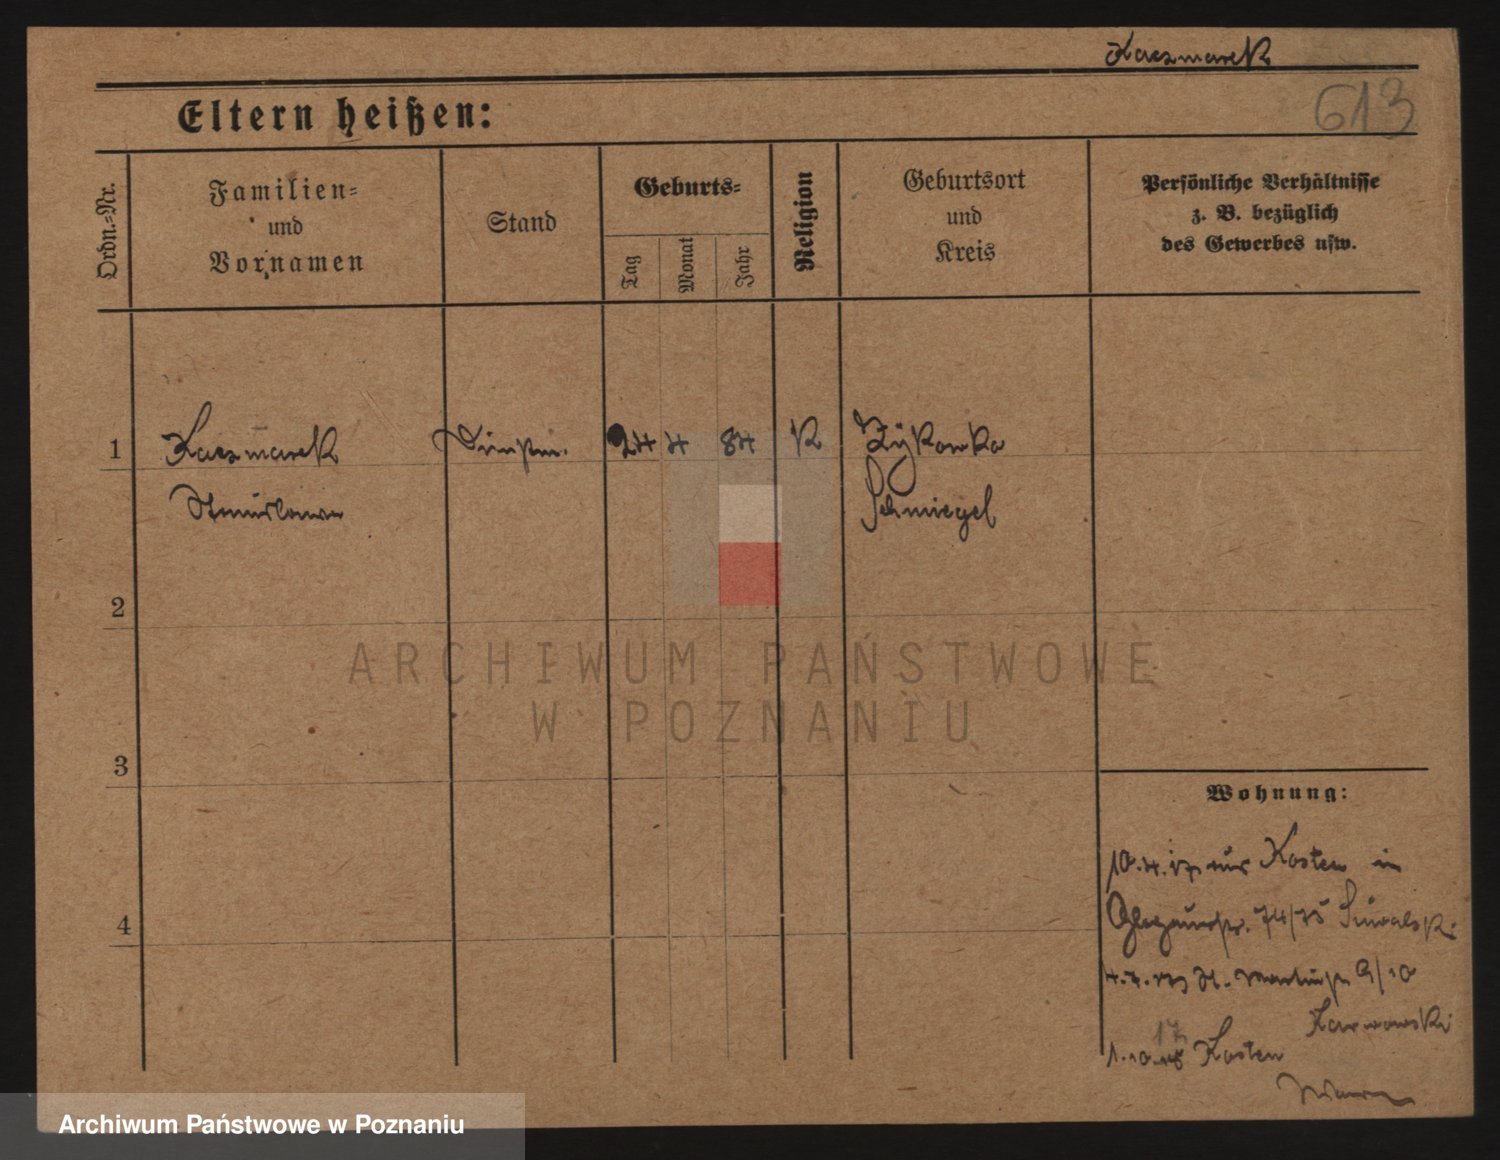 Kaczmarek
613
Eltern heißen:
Ordn.-Nr.
Familien-
und
Vornamen
Stand
Geburts-
Tag
Monat
Jahr
Religion
Geburtsort
und
Kreis
Persönliche Verhältnisse
z. B. bezüglich
des Gewerbes usw.
1
Kaczmarek
24 4 84
K
Stanislawa
Schmiegel
2
ARCHIWUM PAŃSTWOWE
W POZNANIU
3
Wohnung:
10.4.17 aus Kosten in
74/75
4
9/10
Karwowski
17
1.10. Kosten
Archiwum Państwowe w Poznaniu